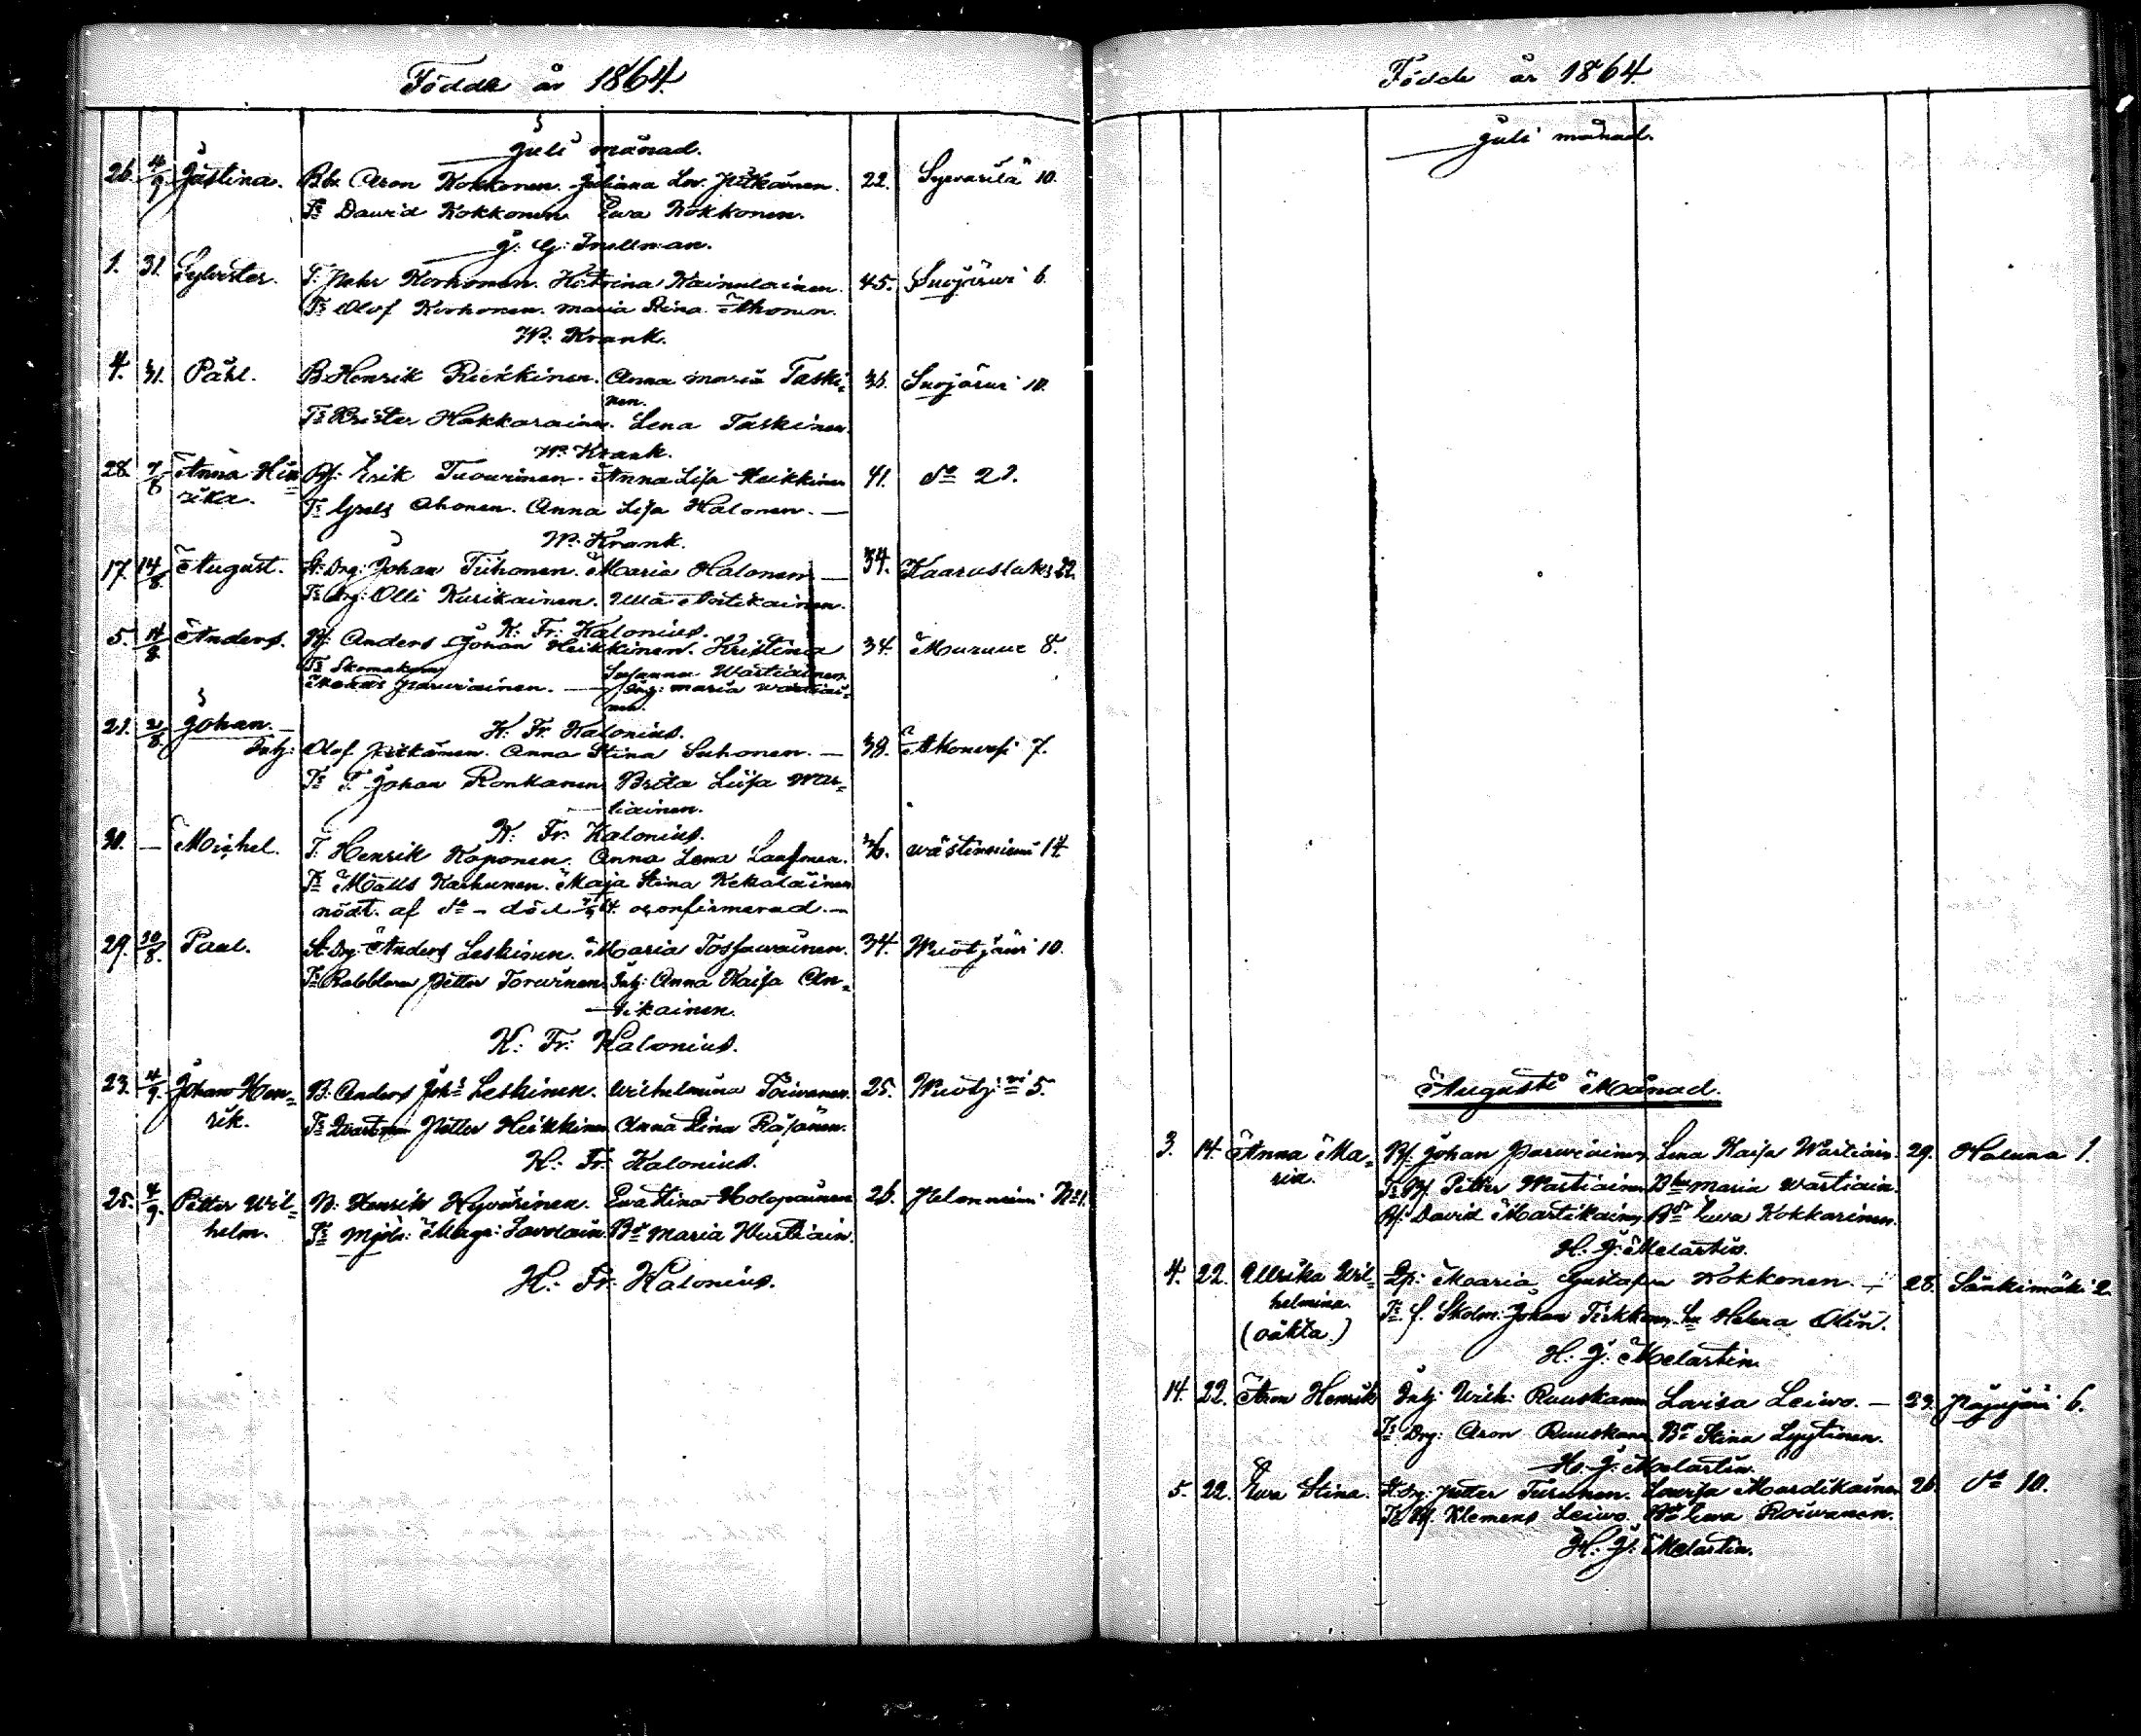 Födda år 1864.
Juli månad.
26. 4/9 Justina. Bd. Aron Kokkonen. Juliana Lov. Pitkänen. 22. Syvärilä 10.
Ts David Kokkonen Ewa Kokkonen.
J. G. Snellman.
1. 31. Sylvester. T. Pehr Korhonen. Katrina Kainulainen. 45. Suojärwi 6.
Ts Olof Korhonen. Maria Stina Ahonen.
W. Krank.
4. 31. Påhl. B. Henrik Riekkinen. Anna Maria Taski= 36. Suojärwi 10.
nen.
Ts Krister Hakkarainen. Lena Taskinen.
W. Krank.
28. 7/8 Anna Hen= Bf. Erik Tuovinen. Anna Lisa Heikkinen 41. do 21.
rika. Ts Grels Ahonen. Anna Lisa Halonen. —
W. Krank.
17. 14/8 August. St. Drg: Johan Tiihonen. Maria Halonen — 34. Kaarusluks 22.
Ts Drg: Olli Kurikainen. Ulla Antikainen.
K: Fr: Kalonius.
5. 14/8 Anders. Bf. Anders Johan Heikkinen. Kristina 34. Muruue 8.
Ts Skomakare Susanna Wartiainen.
Parviainen. — Drg: Maria Wartiai=
nen.
K. Fr. Kalonius.
21. 21/8 Johan. — Inh: Olof Pitkänen. Anna Stina Suhonen. — 38. Akonvesi 7.
Ts T. Johan Ronkanen Brita Liisa War=
tiainen.
K: Fr: Kalonius.
30. — Michel. T. Henrik Koponen. Anna Lena Laufmen. 36. Västinniemi 14.
Ts Matts Karhunen. Maja Stina Kekäläinen
nödt. af do — död 7/9 64. okonfirmerad. —
29. 30/8 Paul. St. Drg: Anders Leskinen. Maria Tossavainen. 34. Wuotjärvi 10.
Ts Petter Torvinen Inh: Anna Kaisa An=
tikainen.
K: Fr: Kalonius.
23. 4/9 Johan Hen= B. Anders Joh: Leskinen. Wilhelmina Toivanen. 25. Wuotj:vi 5.
rik. Ts Petter Heikkinen Anna Stina Räsänen.
K: Fr: Kalonius.
25. 4/9 Petter Wil= B. Henrik Hyvärinen. Ewa Stina Holopainen 26. Pelonniemi No 1.
helm. Ts Mjöln: Magn: Savolain. Bd Maria Wartiain.
K: Fr: Kalonius.
Födde år 1864.
Juli månad.
Augusti Månad.
3. 14. Anna Ma= Bf. Johan Parviainen, Lena Kaisa Wartiain. 29. Haluna 1.
ria. Ts Bf. Petter Wartiainen Maria Wartiain.
Bf. David Martikainen, Bd Ewa Kokkarinen.
H. J. Melartin.
4. 22. Ullrika Wil= Maria Gustafva Kokkonen. — 28. Sänkimäki 2.
helmina. Ts f. Skolm: Johan Tirkkonen. Helena Olin.
(oäkta.)
H. J: Melartin.
14. 22. Aron Henrik Inh: Wilh: Ruuskanen Lovisa Leivo. — 23. Pajujärvi 6.
Ts Drg: Aron Ruuskanen Bd Stina Lyytinen.
H. J: Melartin.
5. 22. Ewa Stina. St. Drg: Petter Turunen. Lovisa Mardikainen 26. do 10.
Ts Bf. Klemens Leivo. Bd Ewa Roivanen.
H: J: Melartin.